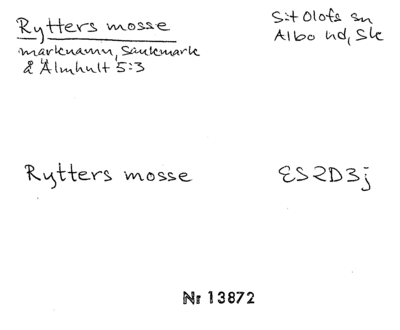 Rytters mosse
marknamn, Sankmark
å Älmhult 5:3
S:t Olofs sn
Albo hd, Sk
Rytters mosse
ES2D3j
Nr 13872